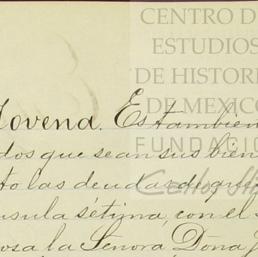 CENTRO D
ESTUDIOS
DE HISTOR
DE MEXICO
FUNDACIÓ
Carlos Sli
Novena. Es tambien
dos que sean sus bien
to las deudas de
usula sétima, con el
osa la Señora, Doña